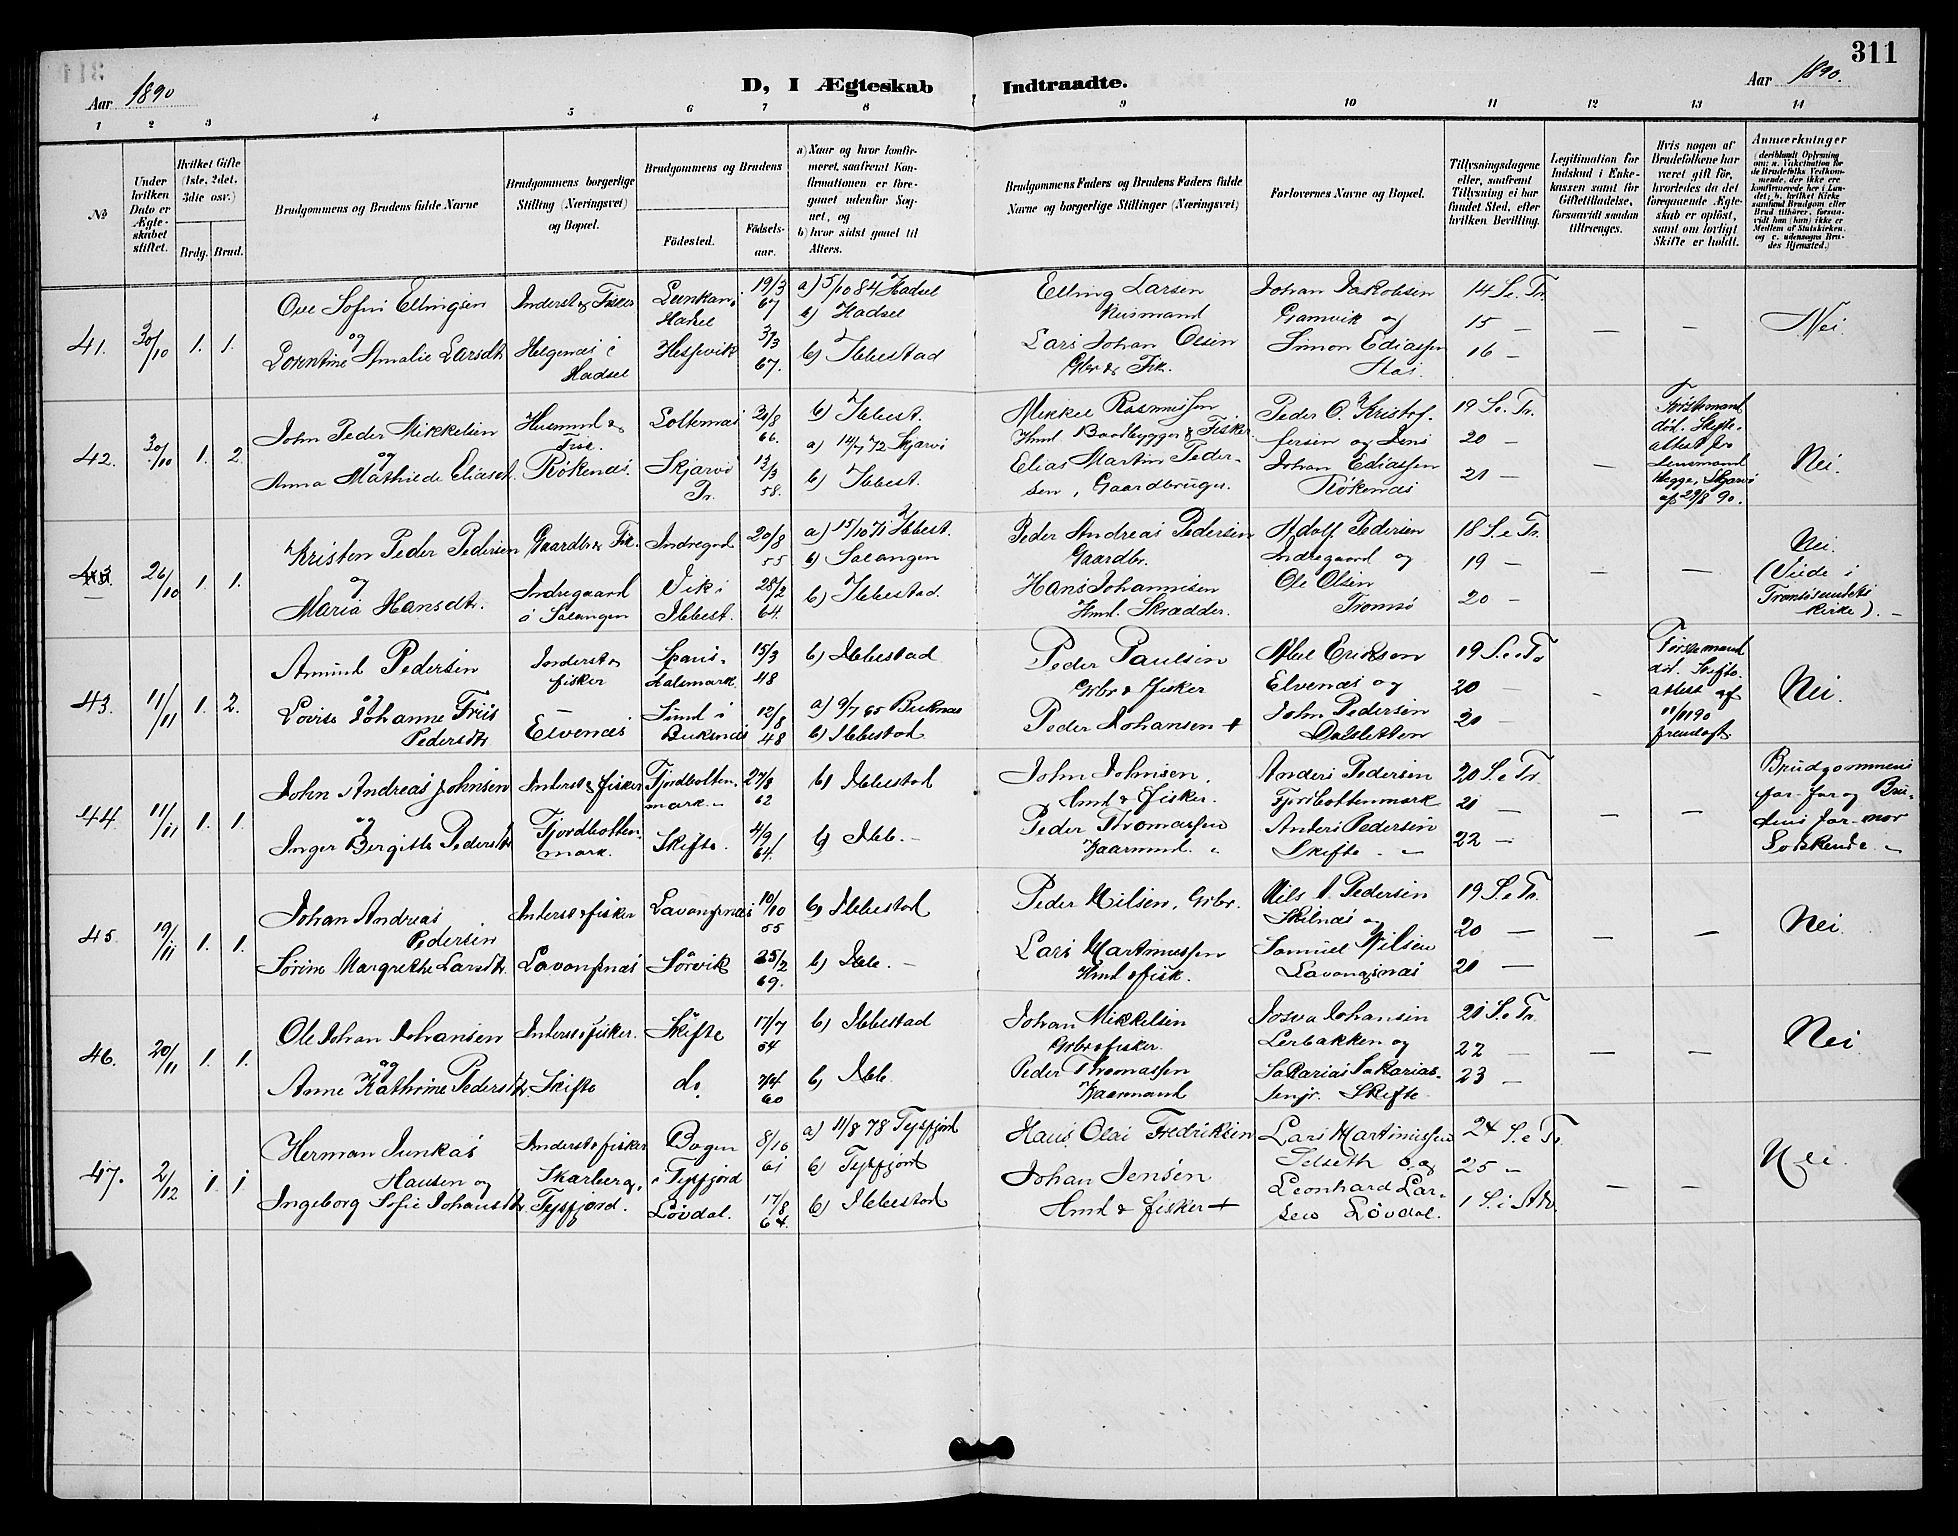 311
Aar 1890
D, I Ægteskab Indtraadte.
Aar 1890.
1 2 3 4 5 6 7 8 9 10 11 12 13 14
№
Under hvilken Dato er Ægteskabet stiftet.
Hvilket Gifte (1ste, 2det, 3die osv.)
Brdg. Brud.
Brudgommens og Brudens fulde Navne
Brudgommens borgerlige Stilling (Næringsvei) og Bopæl.
Brudgommens og Brudens
Födested.
Födsels-aar.
a) Naar og hvor konfirmeret, saafremt Konfirmationen er foregaaet udenfor Sognet, og
b) hvor sidst gaaet til Alters.
Brudgommens Faders og Brudens Faders fulde Navne og borgerlige Stillinger (Næringsvei)
Forlovernes Navne og Bopæl.
Tillysningsdagene eller, saafremt Tillysning ei har fundet Sted, efter hvilken Bevilling.
Legitimation for Indskud i Enkekassen samt for Giftetilladelse, forsaavidt saadan tiltrænges.
Hvis nogen af Brudefolkene har været gift för, hvorledes da det foregaaende Ægteskab er oplöst, samt om lovligt Skifte er holdt.
Anmærkninger
41. 30/10 1. 1.
Ove Sofus Ellingsen
og
Lorentine Amalie Larsdt.
Inderst & Fisker
Helgenæs i
Hadsel
Hadsel
Hesjevik
19/3
67
3/3
67.
a) 5/10 84 Hadsel
b) Hadsel
b) Ibbestad
Elling Larsen
Husmand
Lars Johan Olsen
Gbr & Fisk.
Johan Jakobsen
Gamvik og
Simon Ediassen
14 S. e. Tr.
15 —
16 —
—
—
Nei
42. 30/10 1. 2.
John Peder Mikkelsen
og
Anna Mathilde Eliasdt.
Husmd &
Fisk.
Rökenæs
Loltenæs
Skjærvö
Pr.
66.
58.
b) Ibbest.
a) 14/7 72 Skjærvö
b) Ibbest.
Mikkel Rasmussen
Hmd Baadbygger & Fisker
Elias Martin Peder-
sen, Gaardbruger.
Peder O. Kristof-
fersen og Jens
Johan Ediassen
Rökenæs
19 S. e. Tr.
20 —
21 —
—
Förstemand
död. Skifte-
attest fra
Lensmand
Hegge, Skjærvö
af 29/8 90.
Nei.
43. 26/10 1. 1.
Kristen Peder Pedersen
og
Maria Hansdtr.
Gaardbr & Fisk.
Indregaard
i Salangen
Indregard
Vik i
Ibbest.
20/8
55
28/2
64.
a) 15/10 71 Ibbest.
b) Salangen
b) Ibbestad.
Peder Andreas Pedersen
Gaardbr.
Hans Johannesen
Hmd. Skrædder.
Adolf Pedersen
Indregaard og
Ole Olsen
Tromsö
18 S. e. Tr.
19 —
20 —
—
—
Nei.
(Viede i
Tromsösundets
kirke).
43. 11/11 1. 2.
Amund Pedersen
og
Lovise Johanne Friis
Pedersdtr
Inderst &
fisker
—
Elvenæs
Spans-
dalsmark.
Sund i
Buksnæs
15/3
48
12/8
48
b) Ibbestad
a) 9/7 65 Buksnæs
b) Ibbestad
Peder Paulsen
Grbr & Fisker
Peder Johansen +
Abel Eriksen
Elvenæs og
John Pedersen
Dalsletten
19 S. e. Tr
20 —
20 —
-
Förstemand
död. Skifte-
attest af
11/11 90
fremlagt
Nei.
44. 11/11 1. 1.
John Andreas Johnsen
og
Inger Bergitte Pedersdtr
Inderst & fisker
Fjordbotten-
mark.
Fjordbotten-
mark.
Skifte.
27/8
62
4/9
64.
b) Ibbestad
b) Ibb. —
John Johnsen,
Hmd & fisker.
Peder Thomassen
Kaarmand.
Anders Pedersen
Fjordbottenmark
Anders Pedersen
Skifte.
20 S. e. Tr.
21 —
22 —
—
—
Brudgommens
far-far og Bru-
dens far-mor
Södskende.
45. 19/11 1. 1.
Johan Andreas
Pedersen
Sörine Margrethe Larsdtr.
Inderst & fisker
Lavangsnæs
Lavangsnæs
Sörvik
10/10
55
25/2
69.
b) Ibbestad
b) Ibb. —
Peder Nilsen, Grbr.
Lars Martinussen
Hmd & fisk.
Nils A. Pedersen
Skilnæs og
Samuel Nilsen
Lavangsnæs
19 S. e. Tr.
20 —
21 —
—
—
Nei.
46. 20/11 1. 1.
Ole Johan Johansen
og
Anne Kathrine Pedersdtr.
Inderst & fisker.
Skifte
Skifte
do
17/7
64
60
b) Ibbestad
b) Ibb.
Johan Mikkelsen
Grbr & fisker.
Peder Thomassen
Kaarmand
Josva Johansen
Lerbakken og
Sakarias Sakarias-
senjr. Skifte.
21 S. e. Tr.
22 —
23 —
—
—
Nei
47. 2/12 1. 1
Herman Junkas
Hansen og
Ingeborg Sofie Johansdtr.
Inderst & fisker
Skarberg,
Tysfjord.
Bogen
i Tysfjord
Lövdal.
8/10
61
17/8
64.
a) 11/8 78 Tysfjord
b) Tysfjord
b) Ibbestad
Hans Olai Fredriksen
Johan Jensen
Hmd & fisker +
Lars Martinussen
Selseth og
Leonhard Lar-
sen Lövdal.
24 S. e. Tr.
25 —
1 S. i Adv.
—
—
Nei.